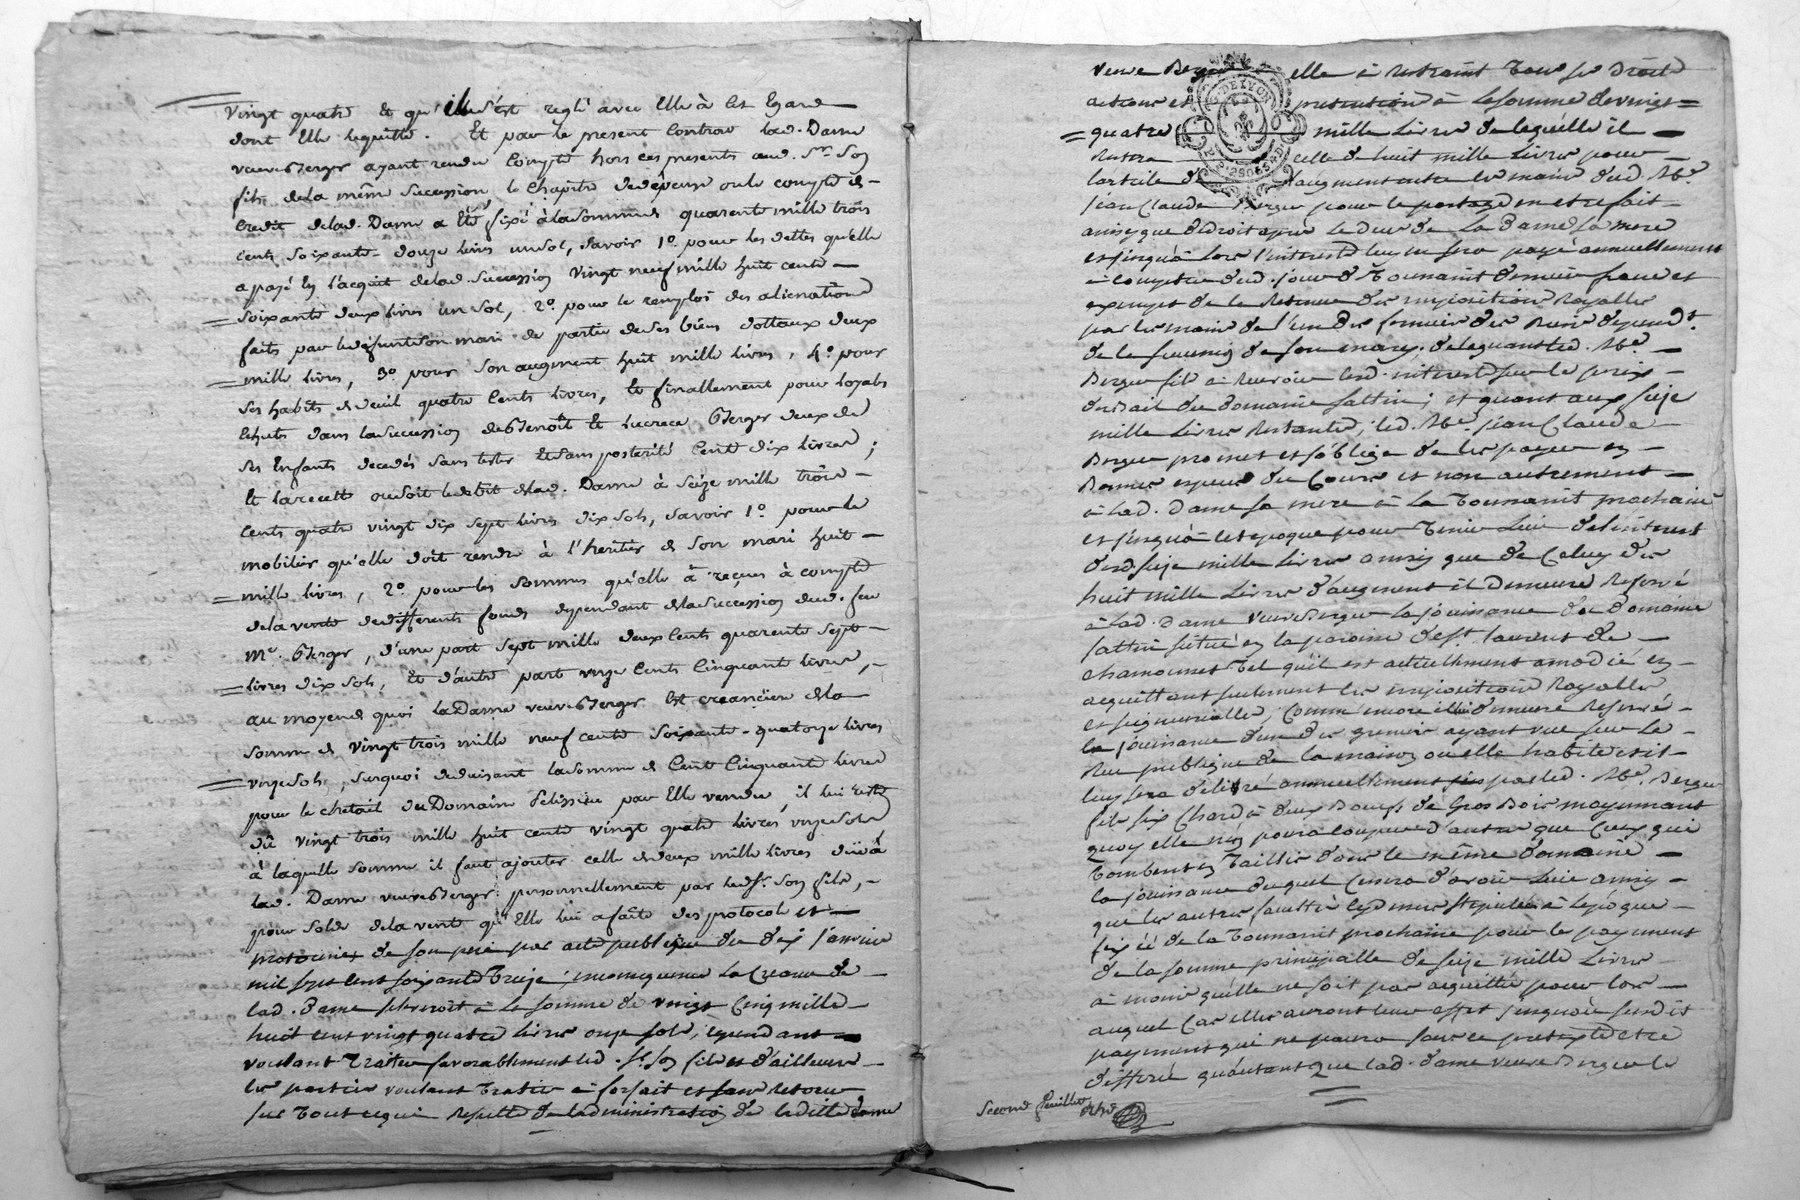 vingt quatre et qu'il s'est reglé avec Elle à cet Egard
dont Elle le quitte. Et par le present Contrat lad. Dame
veuve Berger ayant rendu Compte hors ces presents aud. Sr. son
fils de la même succession, le Chapitre de dépense ou le compte de
Credit de lad. Dame a Eté fixé à la somme de quarente mille trois
cents soixante-douze livres un sol, savoir 1o. pour les dettes qu'elle
a payé En l'acquit de lad. succession vingt neuf mille huit cents
soixante deux livres un sol, 2o. pour le remploi des alienations
faits par le defunt son mari de partie de ses biens dottaux deux
mille livres, 3o. pour son augment huit mille livres, 4o. pour
ses habits de deuil quatre Cents livres, Et finallement pour loyals
Echuts dans la succession de Benoît Et Lucrece Berger deux de
ses Enfants decedés sans tester Et sans posterité Cent dix livres ;
Et la recette ou soit le debit de lad. Dame à seize mille trois
Cents quatre vingt dix sept livres dix sols, savoir 1o. pour le
mobilier qu'elle doit rendre à l'heritier de son mari huit
mille livres, 2o. pour les sommes qu'elle a reçues à compte
de la vente de differents fonds dependant de la succession dud. feu
Me. Berger, d'une part sept mille deux Cents quarente sept
livres dix sols, Et d'autre part onze Cents Cinquante livres,
au moyend quoi la Dame veuve Berger Est creancière de la
somme de vingt trois mille neuf cents soixante-quatorze livres
onze sols, surquoi deduisant la somme de Cent Cinquante livres
pour le chetail du Domaine Pelissieu par Elle vendu, il lui reste
dû vingt trois mille huit cents vingt quatre livres onze sols
à laquelle somme il faut ajouter celle de deux mille livres düe à
lad. Dame veuve Berger personnellement par led. Sr. son fils,
pour solde de la vente qu'Elle lui a faite des protocols et
de son pere par acte publique du dix Janvier
mil sept cent soixante treize; en consequence la Creance de
lad. Dame seleveroit à la somme de vingt Cinq mille
huit cent vingt quatre livres onze sols, cependant
voulant traiter favorablement led. Sr. son fils et d'ailleurs
les parties voulant traiter à forfait et sans retour
sur tout ce qui resulte de ladministration de ladite dame
veuve Berger elle à restraint tous ses Droits
actions et pretentions à la somme de vingt
quatre mille livres de laquelle il
restera celle de huit mille livres pour
l'article de l'augment entre les mains dud. Me.
jean Claude Berger pour le partage en etre fait
ainsy que de droit après le deces de la Dame sa mere
et jusqu'à lors l'interest luy en sera payé annuellement
à compter dud. jour de Toussaint dernier franc et
exempt de la retenue des impositions Royalles
par les mains de l'un des fermiers des biens dependt.
de la succession de son mary. delaquanted. Me.
Berger fils à recevoir lesd. interests sur le prix
du Bail du domaine fattin; et quant aux seize
mille livres restantes, led. Me. jean Claude
Berger promet et s'oblige de les payer en
Deniers espece de Cours et non autrement
à lad. Dame sa mere à la Toussaint prochaine
et jusqu'à cet epoque pour tenir lieu de l'interest
desd. seize mille livres ainsy que de Celuy des
huit mille livres d'augment il demeure reservé
à lad. Dame veuve Berger la jouissance du domaine
fattin situé en la paroisse de St. Laurent de
chamousset tel qu'il est actuellement amodié en
acquittant seulement les impositions Royalles
et seigneurialles, Comme encore il demeure reservé
la jouissance d'un des greniers ayant vue sur la
Rue publique de la maison ou elle habite et il
luy sera delivré annuellement par led. Me. Berger
fils six Chards à deux Boeufs de Gros Bois moyennant
quoy elle n'en poura Couper d'autre que Ceux qui
Tombent en Taillis dans le même domaine
la jouissance duquel Cessera d'avoir lieu ainsy
que les autres facultés cy dessus stipulées à l'epoque
fixée de la Toussaint prochaine pour le payment
de la somme principalle de seize mille livres
à moins quelle ne soit pas acquittée pour lors
auquel Cas elles auront leur effet jusqu'au susdit
payment qui ne poura sous ce pretexte etre
differé qu'autant que lad. dame veuve Berger le
Second feuillet